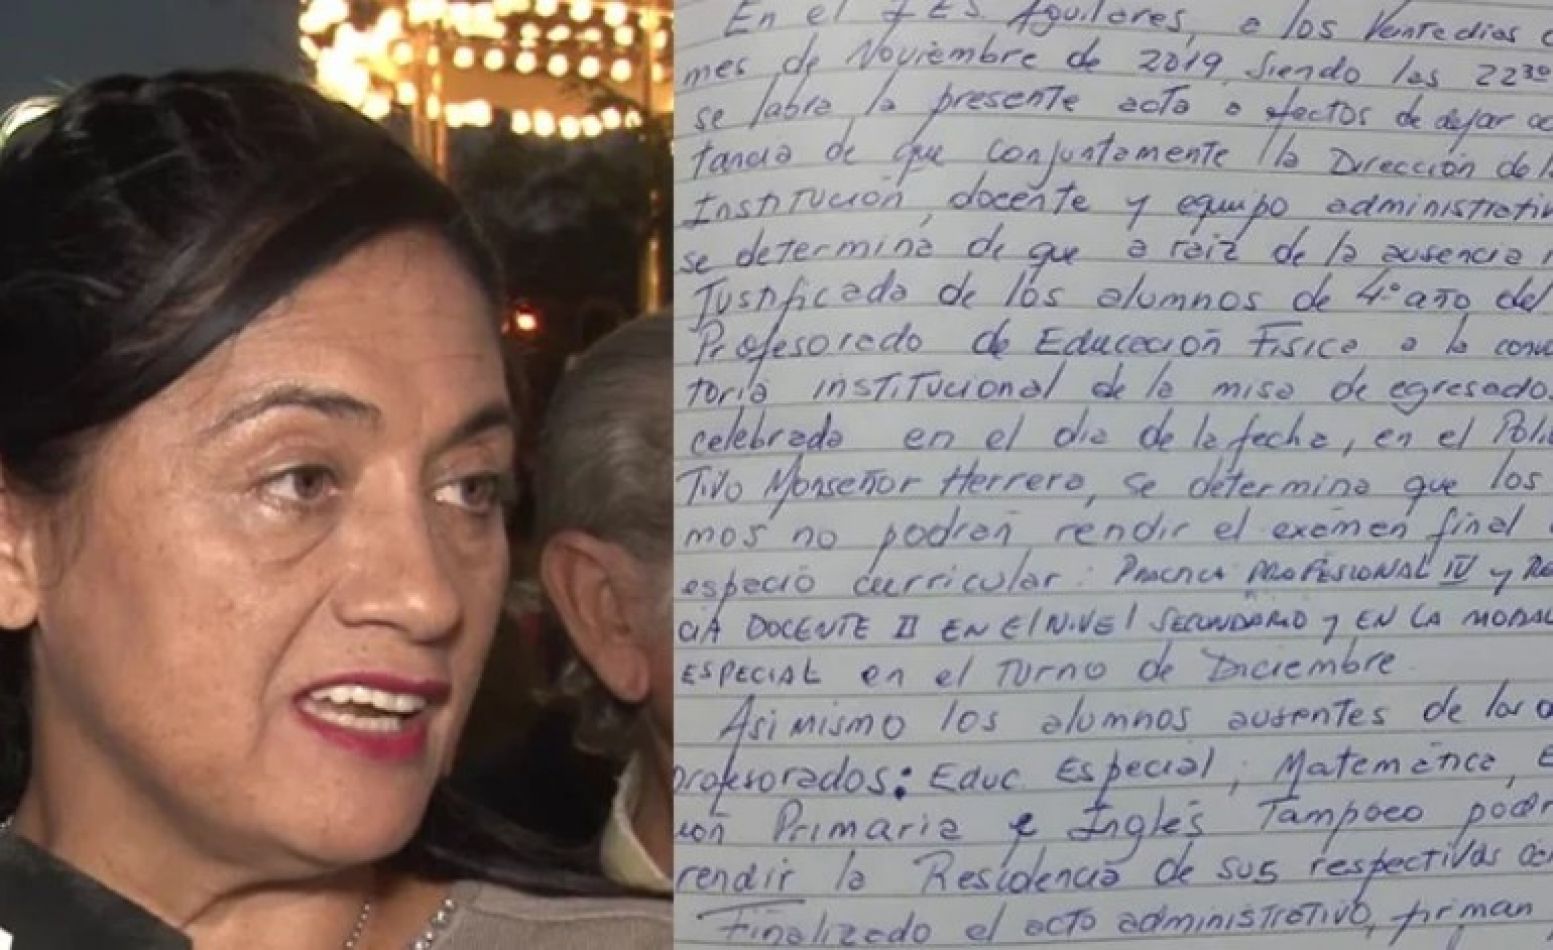 En el I.E.S. Aguilares, a los Veinte dias
mes de Noviembre de 2019 siendo las 22³⁰
se labra la presente acta a efectos de dejar
tancia de que conjuntamente la Dirección de
Institución, docente y equipo administrativ
se determina de que a raiz de la ausencia
Justificada de los alumnos de 4º año del
Profesorado de Educación Fisica a la convo
toria institucional de la misa de egresado
celebrada en el dia de la fecha, en el Poli
tivo Monseñor Herrera, se determina que los
mos no podrán rendir el exámen final
espacio curricular: PRACTICA PROFESIONAL IV y
CIA DOCENTE II EN El NIVEl SECUNDARIO y EN LA MODAL
ESPECIAL en el Turno de Diciembre
Asi mismo los alumnos ausentes de los
profesorados: Educ. Especial, Matemática,
ión Primaria e Inglés Tampoco podr
rendir la Residencia de sus respectivas
Finalizado el acto administrativo, firman